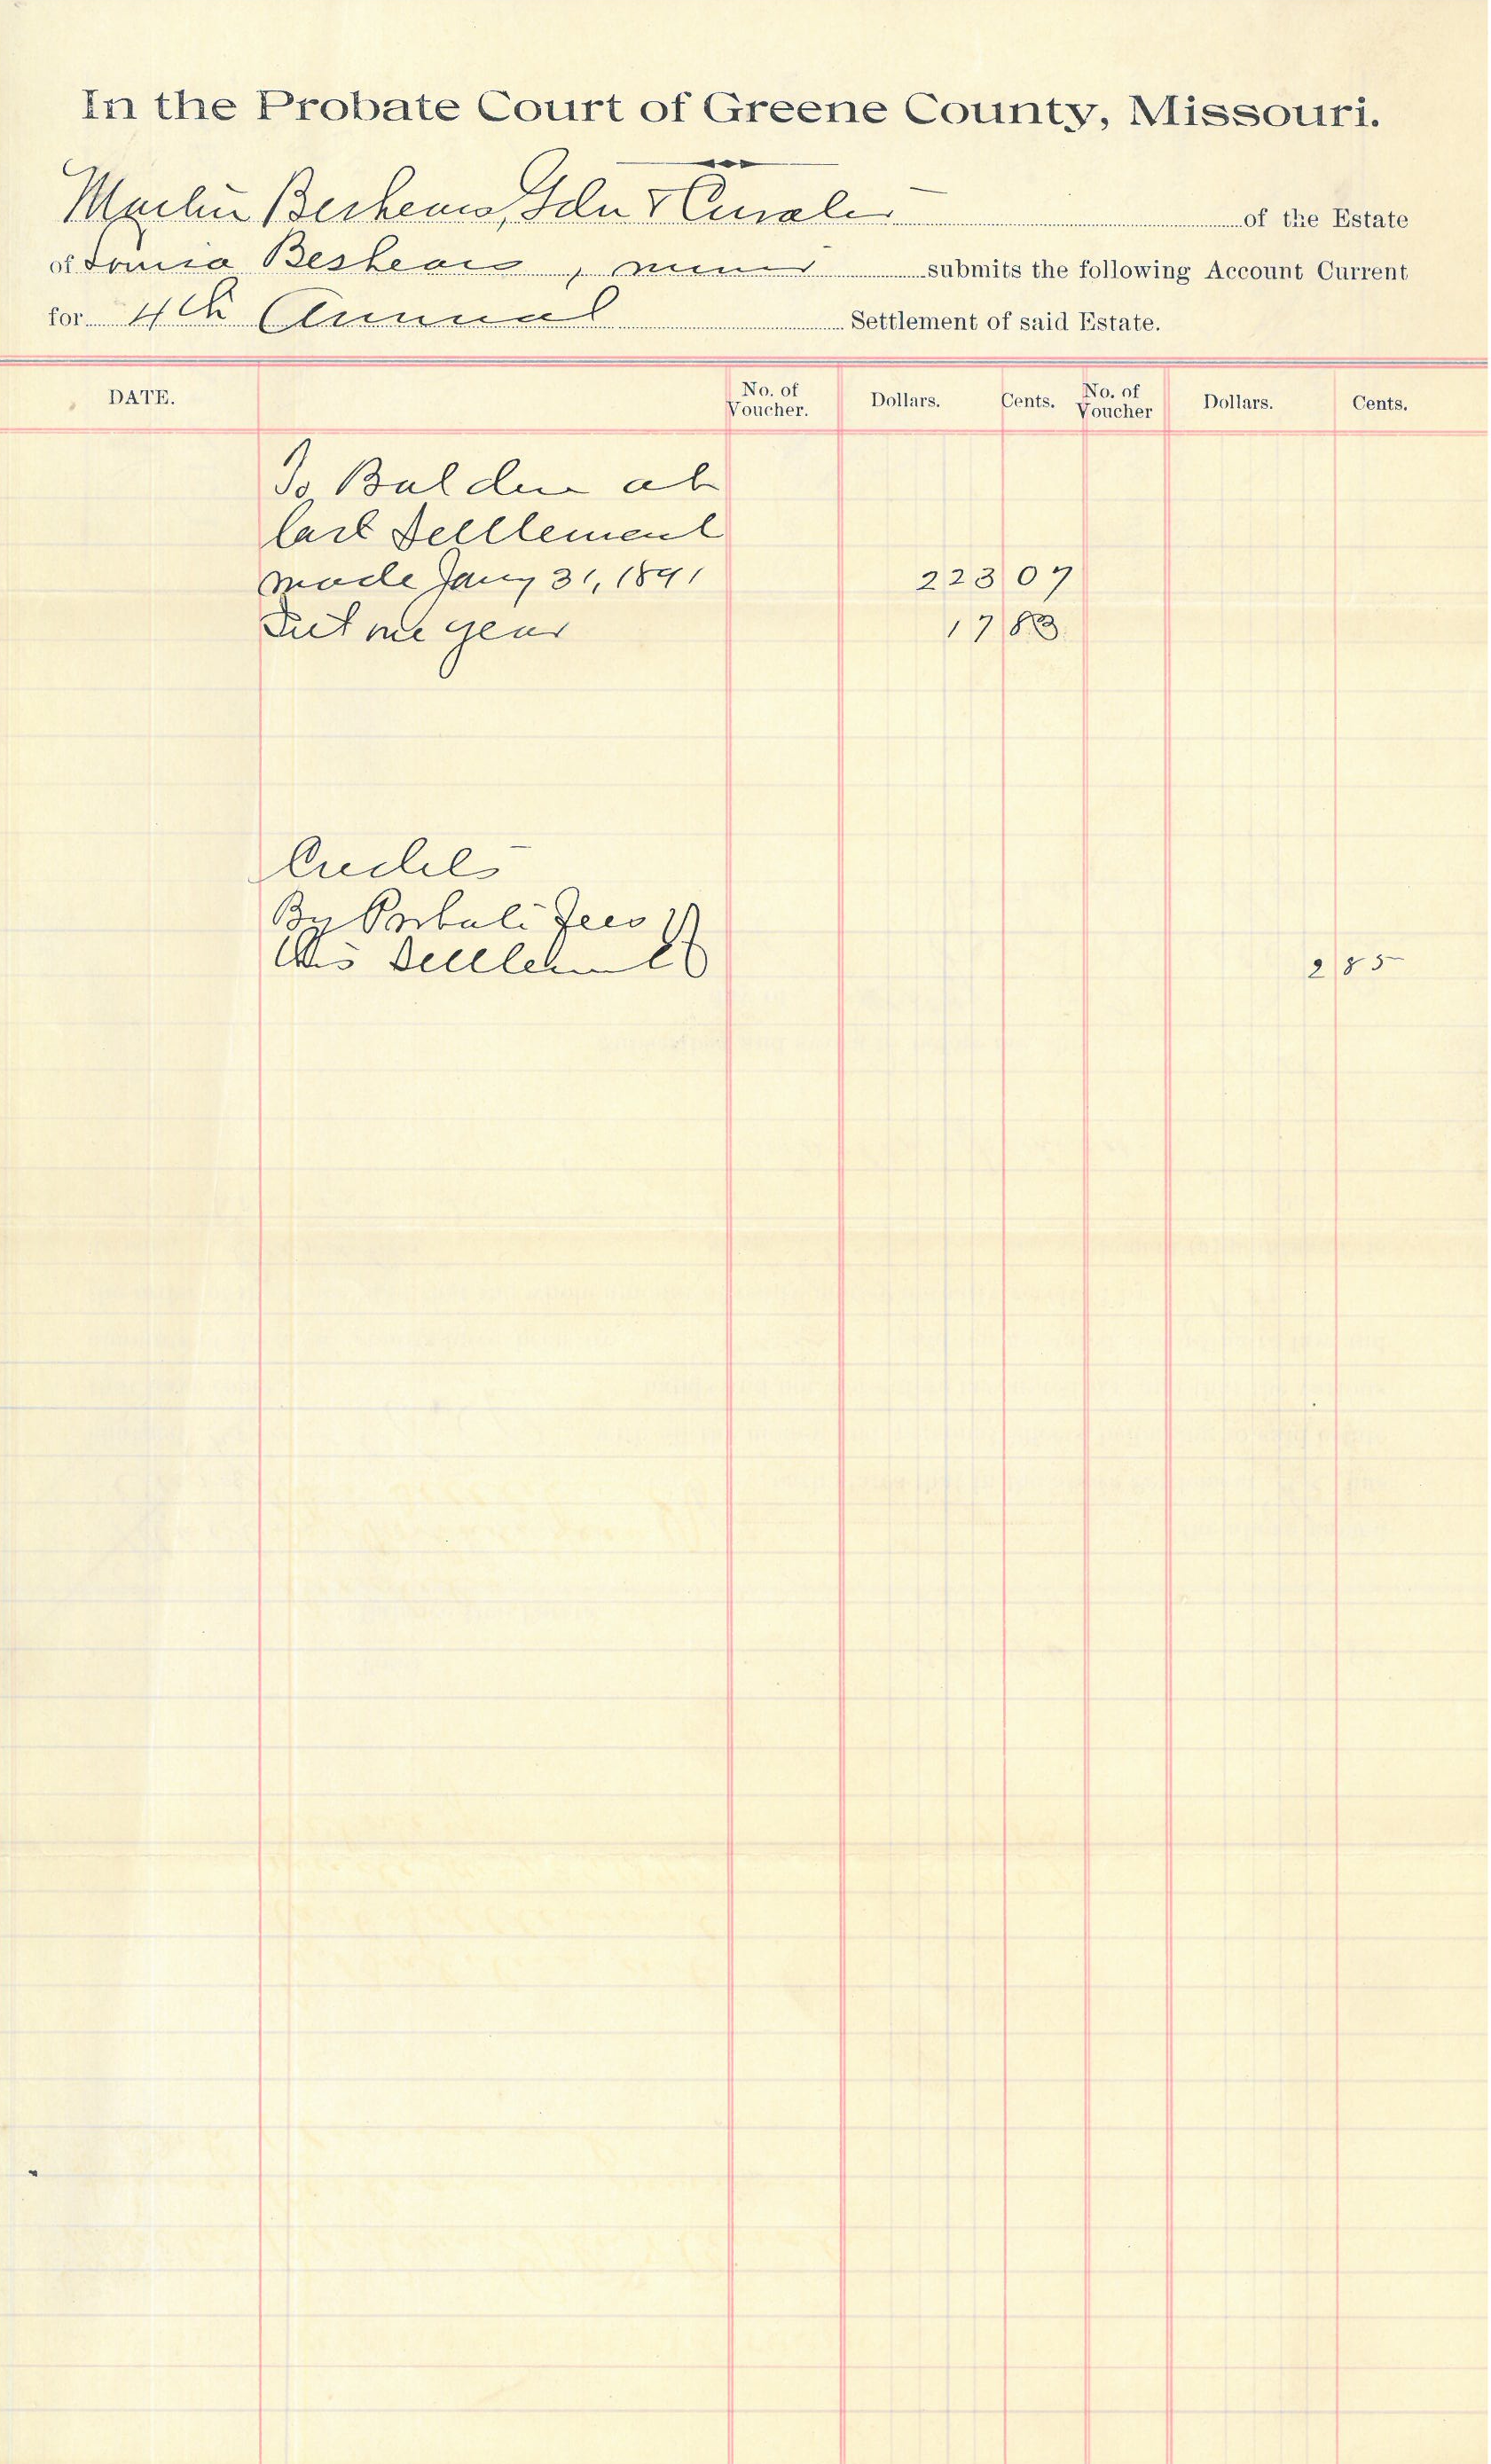 In the Probate Court of Greene County, Missouri.
Martin Beshears, Gdn & Curator of the Estate
of Louisa Beshears, minor submits the following Account Current
for 4th Annual Settlement of said Estate.
DATE. No. of Voucher. Dollars. Cents. No. of Voucher Dollars. Cents.
To Bal due at
last Settlement
made Jany 31, 1891 223 07
Int one year 17 83
Credits
By Probate Fees
this Settlement 2 85